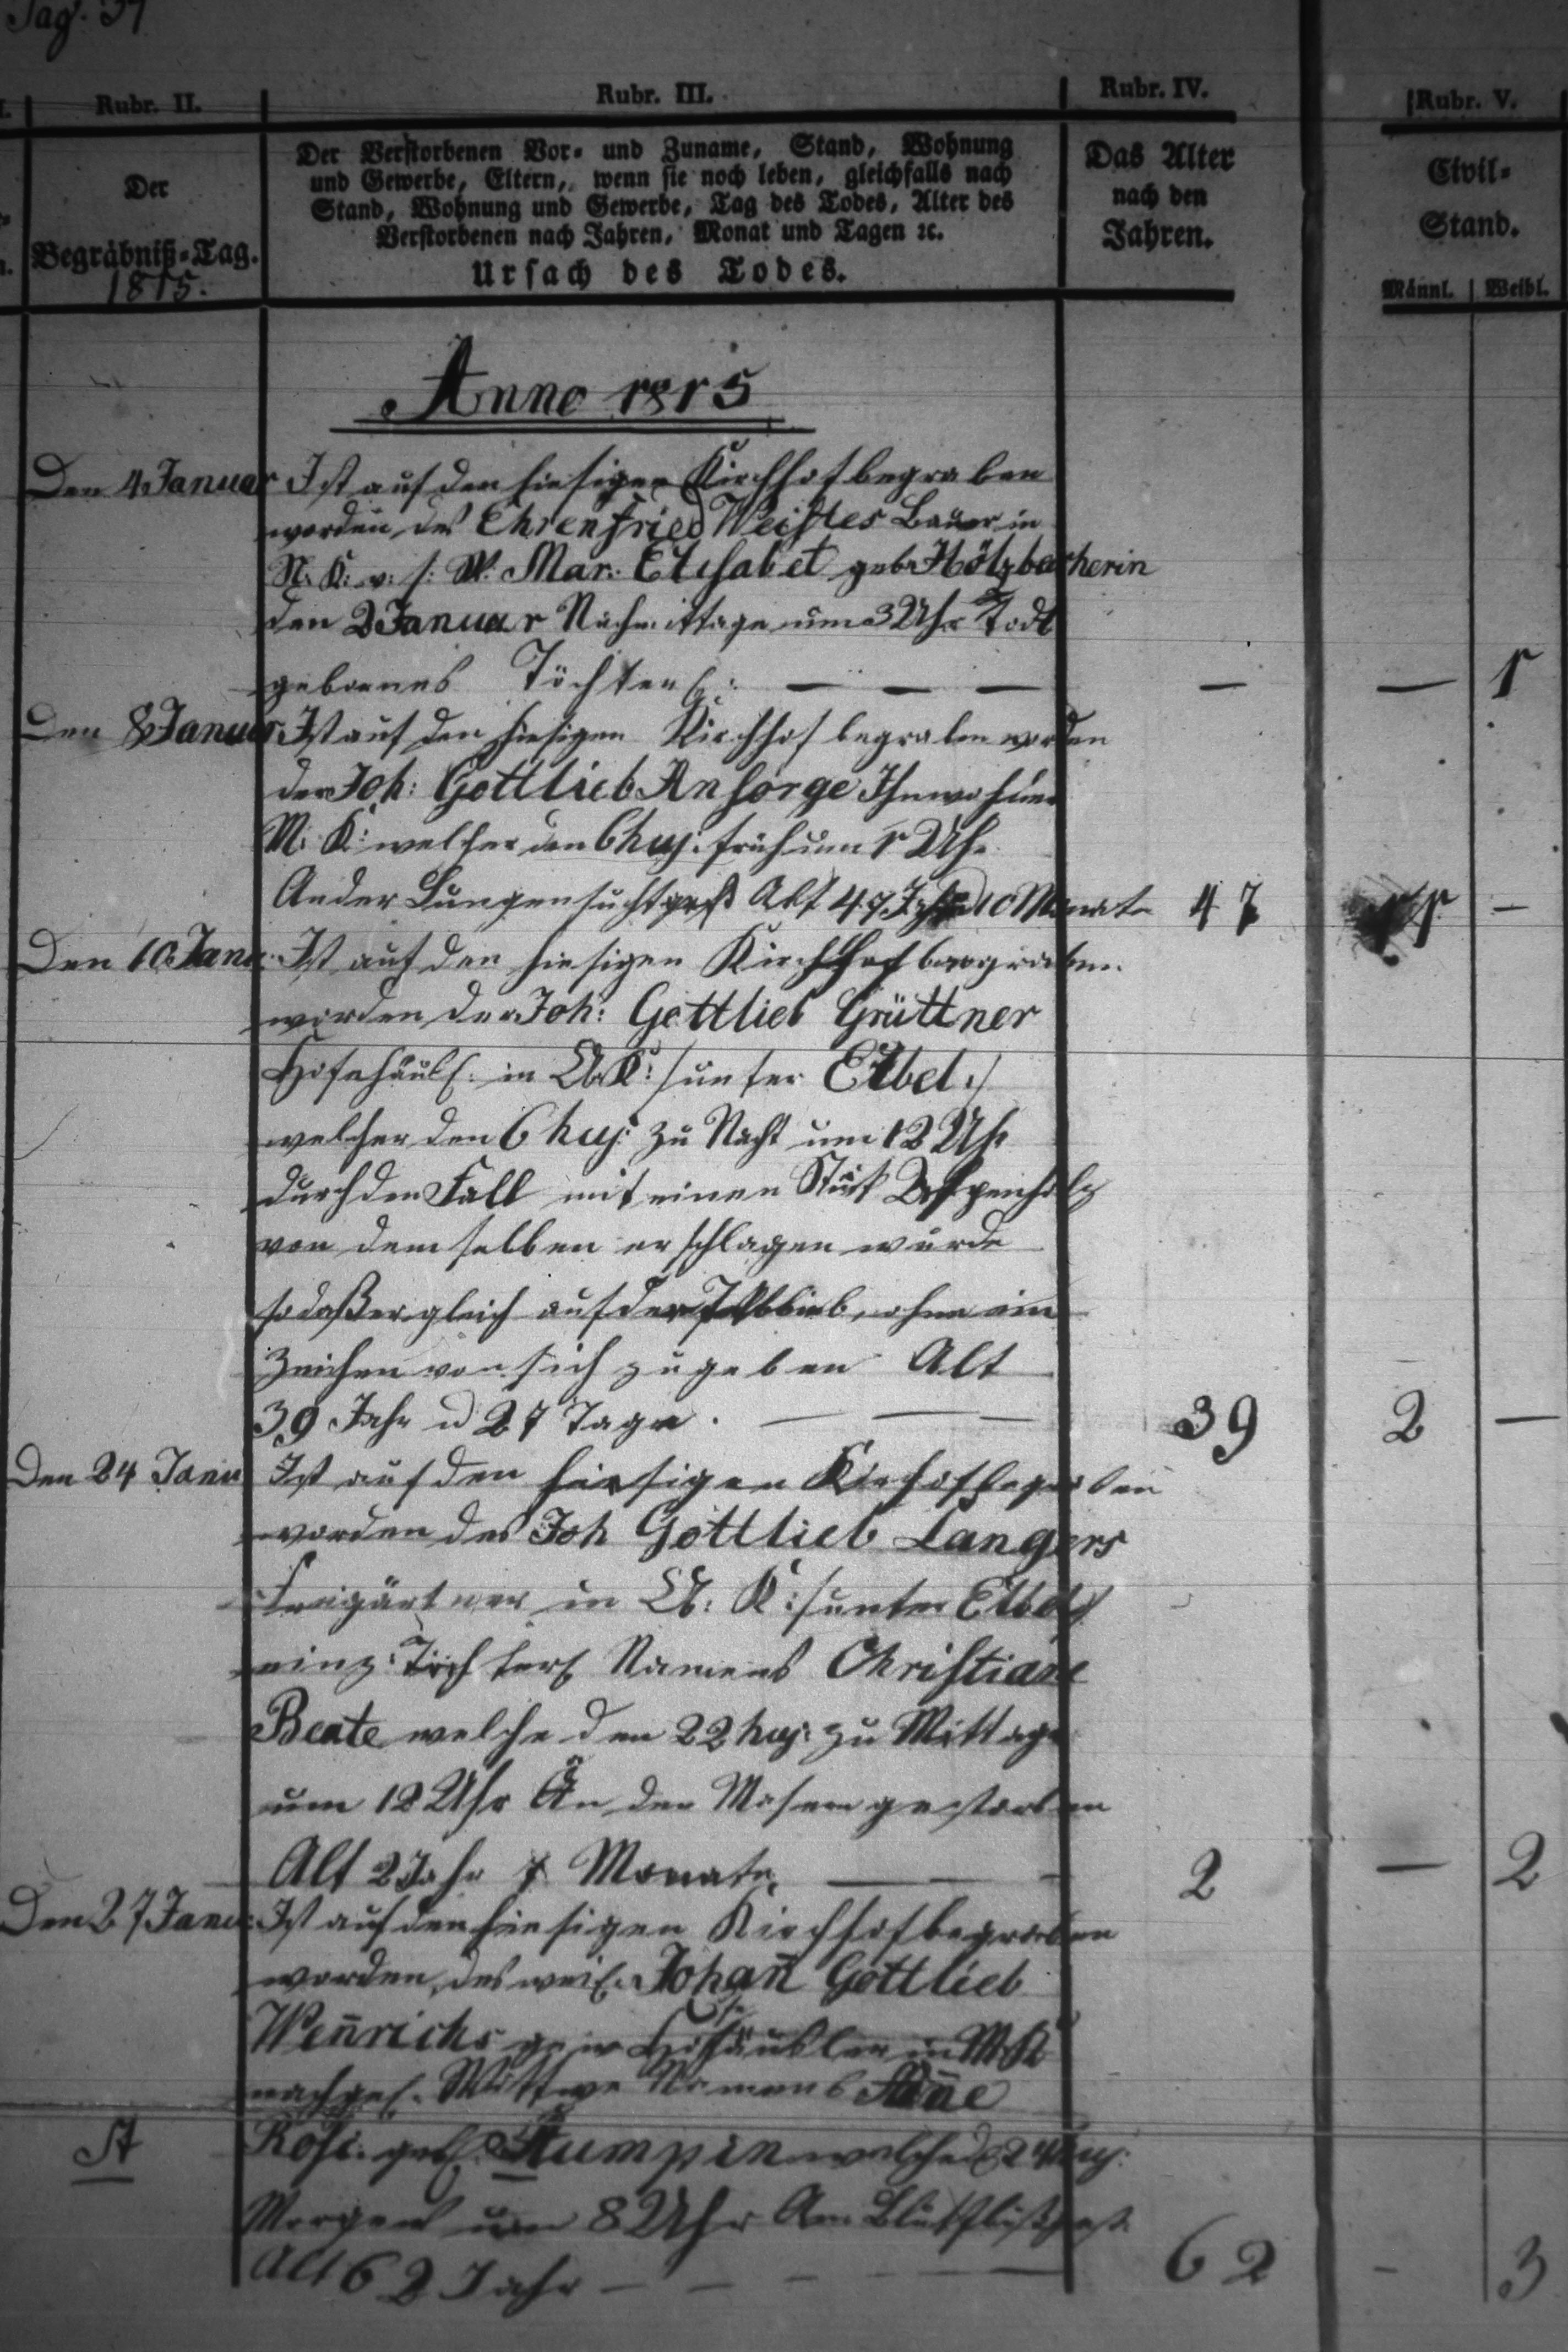 Pag. 37
Rubr. II.
Rubr. III.
Rubr. IV.
Rubr. V.
Der
Begräbniß-Tag.
1815.
Der Verstorbenen Vor- und Zuname, Stand, Wohnung
und Gewerbe, Eltern, wenn sie noch leben, gleichfalls nach
Stand, Wohnung und Gewerbe, Tag des Todes, Alter des
Verstorbenen nach Jahren, Monat und Tagen ꝛc.
Ursach des Todes.
Das Alter
nach den
Jahren.
Civil-
Stand.
Männl. Weibl.
Anno 1815
Den 4 Januar Ist auf den hiesigen Kirchhof begraben
worden des Ehrenfried Bauer in
N. K. v. s. W. Mar: Elisabet geb. Hötzbecherin
den 2 Januar Nachmittage um 3 Uhr Todt
gebornes Töchterl: — — — — — 1
Den 8 Januar Ist auf den hiesigen Kirchhof begraben worden
der Joh: Gottlieb Ansorge Inwohner
M. K: welcher den 6 huj: früh um 1 Uhr
An der Lungensucht gest Alt 47 Jahr 10 Monate 47 1 —
Den 10 Janu: Ist auf den hiesigen Kirchhof begraben
worden der Joh: Gottlieb Grüttner
Hofehäusl: in K: /: unter Eibel :/
welcher den 6 huj: zu Nacht um 12 Uhr
durch den Fall mit einen Stük
von demselben erschlagen wurde
so daß er gleich auf der blieb, ohne ein
Zeichen von sich zugeben Alt
39 Jahr u 27 Tage. — — — 39 2 —
Den 24 Janu Ist auf den hiesigen Kirchhof begraben
worden des Joh Gottlieb Langers
Freigärtner in K: /: unter Eibel :/
einz: Töchterl Namens Christiane
Beate welche den 22 huj: zu Mittage
um 12 Uhr An den Masern gestorben
Alt 2 Jahr 7 Monate. — — 2 — 2
Den 27 Janu: Ist auf den hiesigen Kirchhof begraben
worden, des weil. Johañ Gottlieb
Weñrichs gew Hofehäusler in M. K
nachgel. Wittwe Namens Añe
A Rosi. geb. welche d 24 huj:
Morgens um 8 Uhr Am gest.
Alt 62 Jahr — — — — — 62 - 3